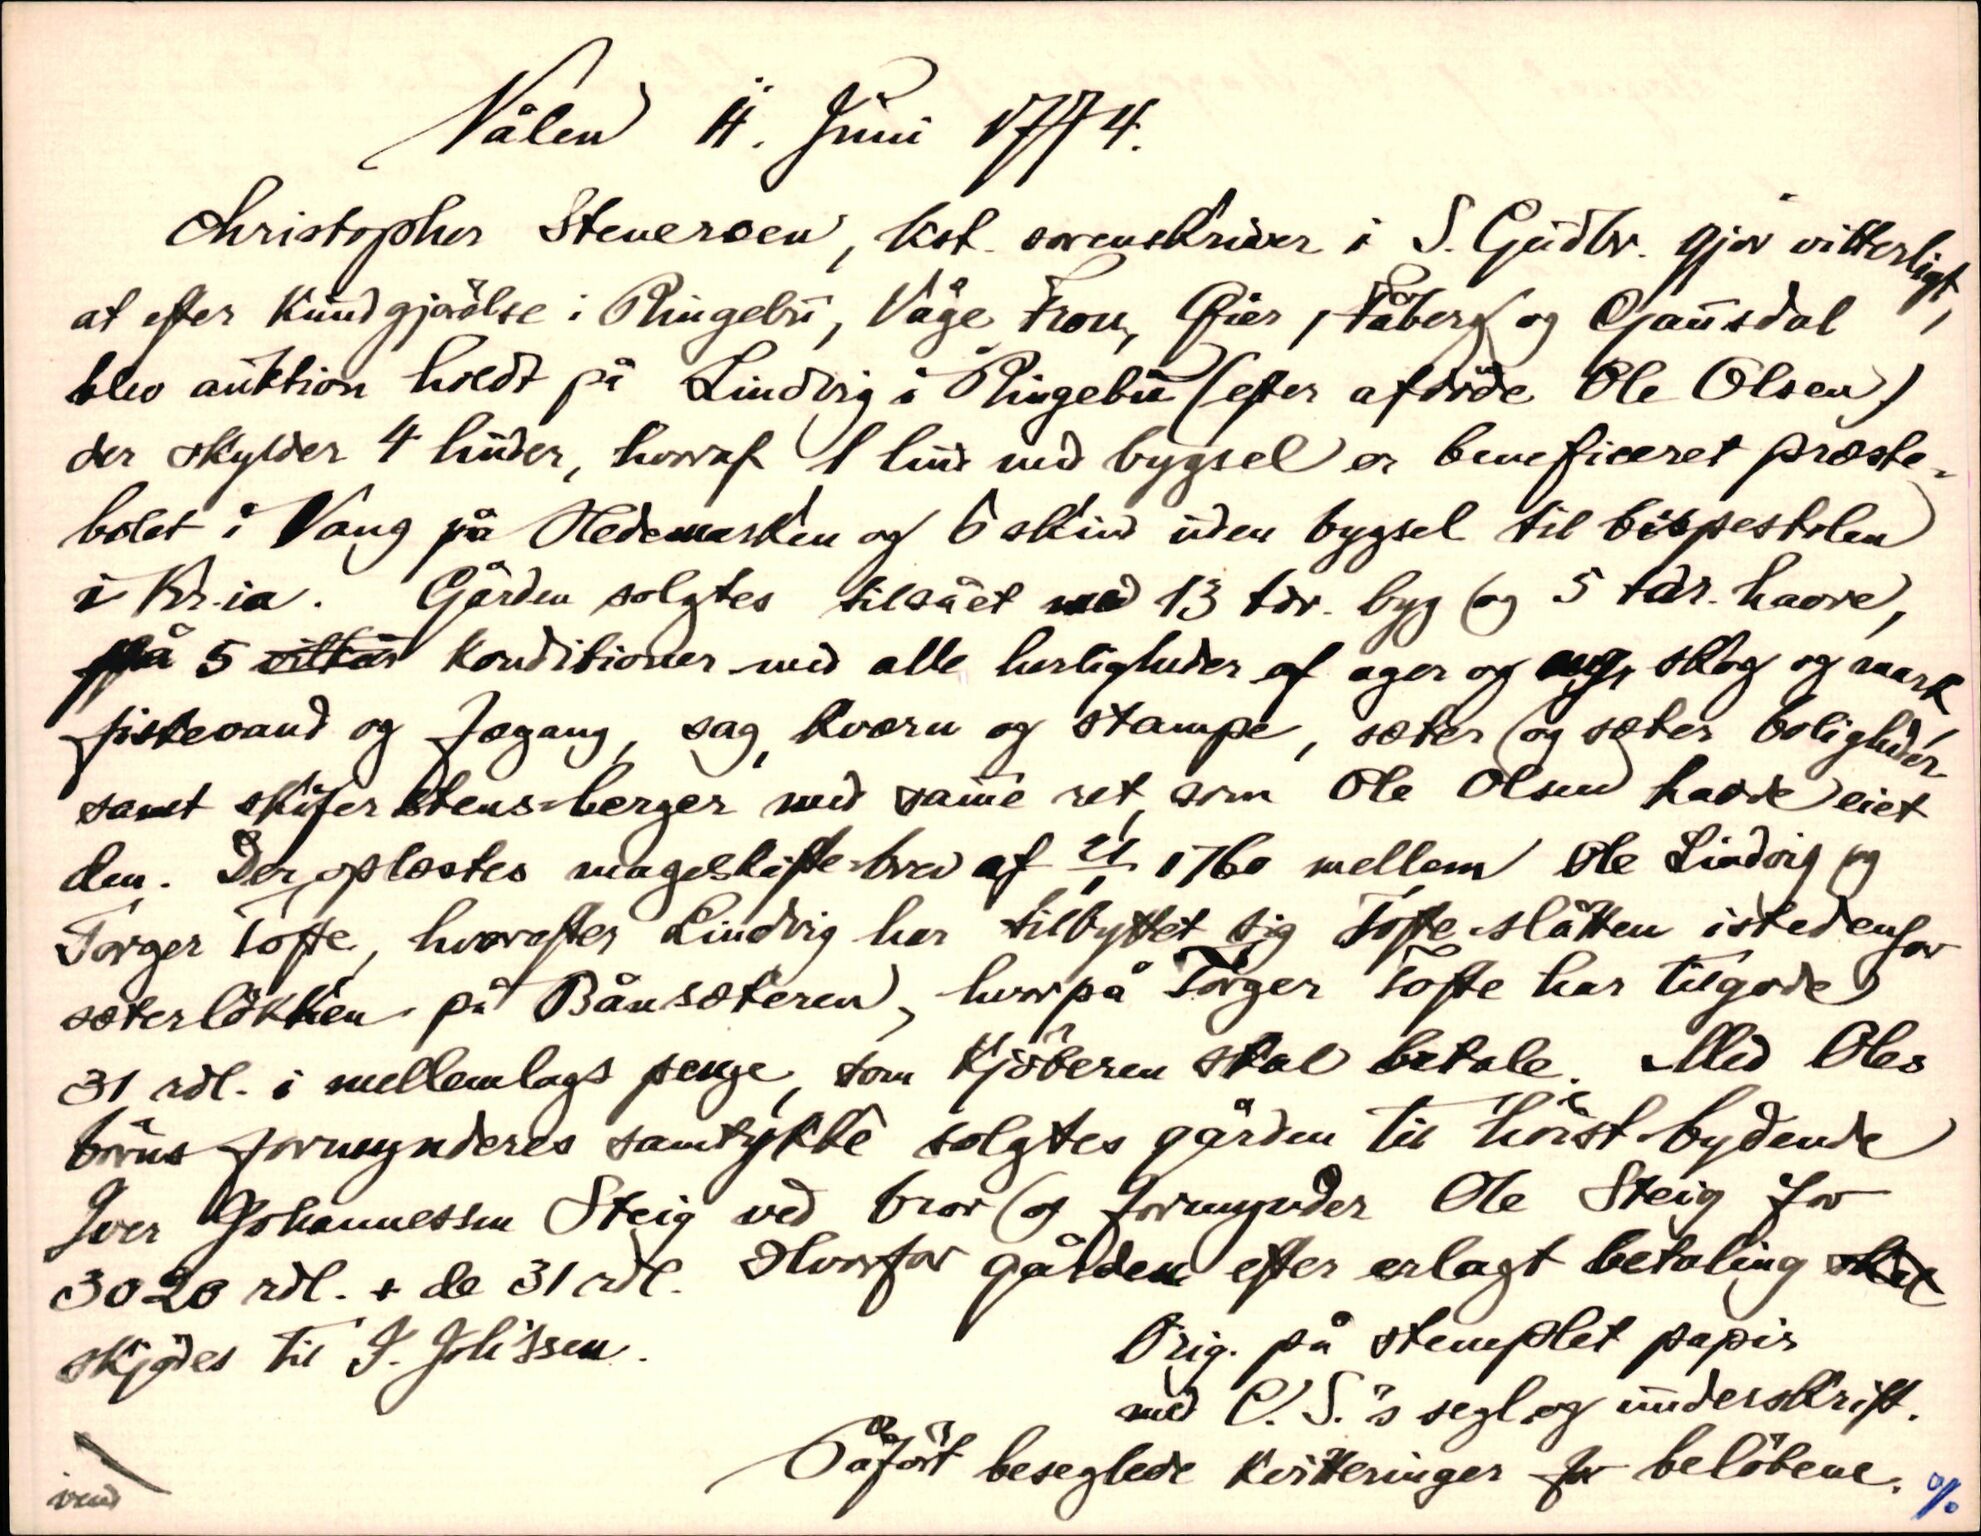 Vålen 11. Juni 1774.
Christopher Stenersen, kst. sorenskriver i S. Gudbr. gjør vitterligt,
at efter kundgjørölse i Ringebu, Våge, Fron, Öier, Fåberg og Gausdal
blev auktion holdt på Lindvig i Ringebu (efter afdöde Ole Olsen)
der skylder 4 huder, hvoraf 1 hud med bygsel er beneficeret præste-
bolet i Vang på Hedemarken og 6 skind uden bygsel til bispestolen
i Kr.ia. Gården solgtes tilsået med 13 tdr. byg og 5 tdr. havre,
på 5 vilkår konditioner med alle herligheder af ager og eng, skog og mark,
fiskevand og fægang, sag, kværn og stampe, sæter og sæter boligheder
samt skifer stens-berger med samme ret, som Ole Olsen havde eiet
den. Der oplæstes mageskifte-brev af 1760 mellem Ole Lindvig og
Torger Tofte, hvorefter Lindvig har tilbyttet sig Tofte-slåtten istedenfor
sæterlökken på Bånsæteren, hvorpå Torger Tofte har tilgode
31 rdl. i mellemlags penge, som kjöberen skal betale. Med Oles
börns formynderes samtykke solgtes gården til höist-bydende
Iver Johannessen Steig ved bror og formynder Ole Steig for
3020 rdl. + de 31 rdl. Hvorfor gården efter erlagt betaling skal
skjödes til I. Joh'ssen.
Orig. på stemplet papir
med C. S.'s segl og underskrift.
Påfört beseglede kvitteringer for belöbene.
vend
%